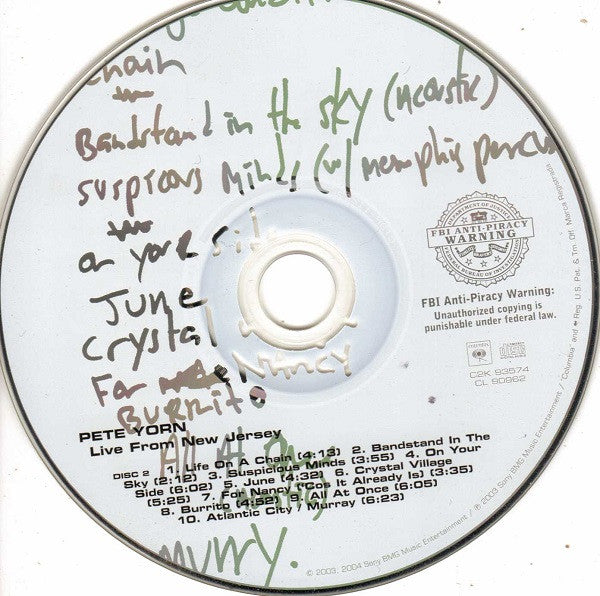 chain
Bandstand in the sky (Acoustic)
suspicous Minds (w/ memphis
DEPARTMENT OF JUSTICE
FBI ANTI-PIRACY
WARNING
FEDERAL BUREAU OF INVESTIGATION
on your
June
Crystal
For
Nancy
BURRITO
FBI Anti-Piracy Warning:
Unauthorized copying is
punishable under federal law.
COLUMBIA
C2K 93574
CL 90962
PETE YORN
Live From New Jersey
All At
DISC 2 1. Life On A Chain (4:13) 2. Bandstand In The
Sky (2:12) 3. Suspicious Minds (3:55) 4. On Your
Side (6:02) 5. June (4:32) 6. Crystal Village
(5:25) 7. For Nancy ('Cos It Already Is) (3:35)
8. Burrito (4:52) 9. All At Once (6:05)
10. Atlantic City / Murray (6:23)
Murry.
© 2003, 2004 Sony BMG Music Entertainment / ℗ 2003 Sony BMG Music Entertainment / "Columbia" and Reg. U.S. Pat. & Tm. Off. Marca Registrada